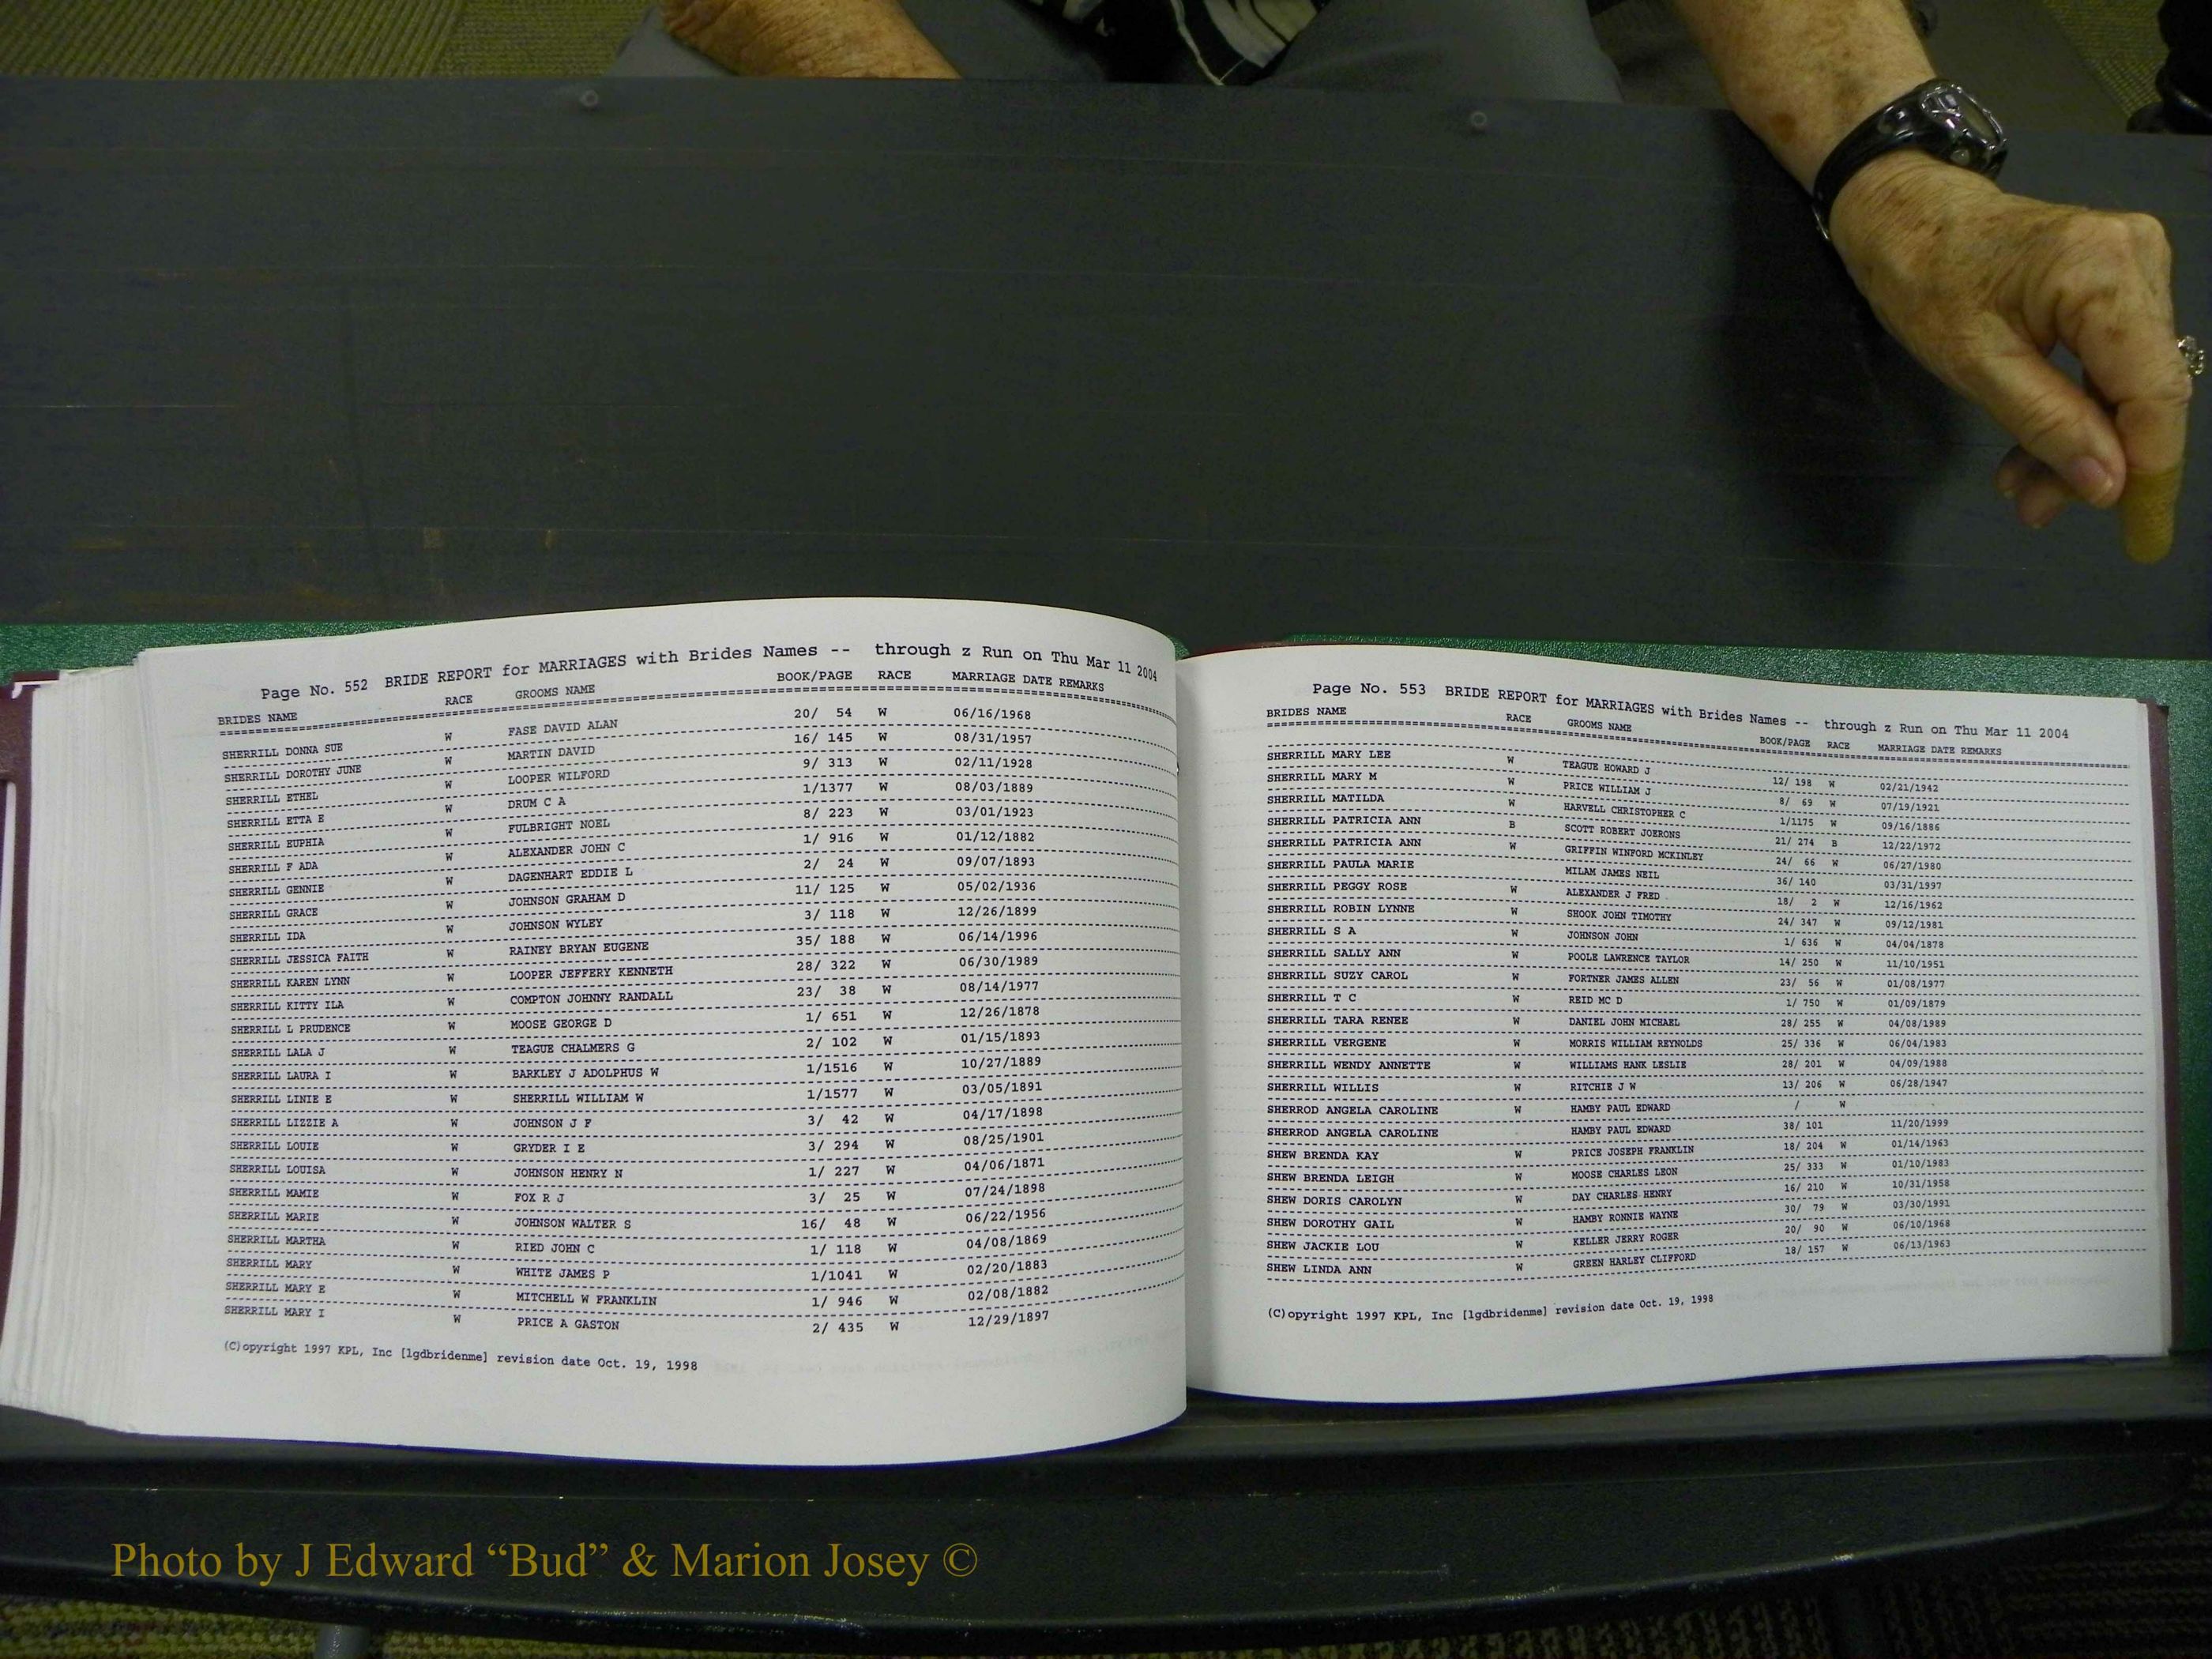 Page No. 552 BRIDE REPORT for MARRIAGES with Brides Names -- through z Run on Thu Mar 11 2004
BRIDES NAME RACE GROOMS NAME BOOK/PAGE RACE MARRIAGE DATE REMARKS
SHERRILL DONNA SUE W FASE DAVID ALAN 20/ 54 W 06/16/1968
SHERRILL DOROTHY JUNE W MARTIN DAVID 16/ 145 W 08/31/1957
SHERRILL ETHEL W LOOPER WILFORD 9/ 313 W 02/11/1928
SHERRILL ETTA E W DRUM C A 1/1377 W 08/03/1889
SHERRILL EUPHIA W FULBRIGHT NOEL 8/ 223 W 03/01/1923
SHERRILL F ADA W ALEXANDER JOHN C 1/ 916 W 01/12/1882
SHERRILL GENNIE W DAGENHART EDDIE L 2/ 24 W 09/07/1893
SHERRILL GRACE W JOHNSON GRAHAM D 11/ 125 W 05/02/1936
SHERRILL IDA W JOHNSON WYLEY 3/ 118 W 12/26/1899
SHERRILL JESSICA FAITH W RAINEY BRYAN EUGENE 35/ 188 W 06/14/1996
SHERRILL KAREN LYNN W LOOPER JEFFERY KENNETH 28/ 322 W 06/30/1989
SHERRILL KITTY ILA W COMPTON JOHNNY RANDALL 23/ 38 W 08/14/1977
SHERRILL L PRUDENCE W MOOSE GEORGE D 1/ 651 W 12/26/1878
SHERRILL LALA J W TEAGUE CHALMERS G 2/ 102 W 01/15/1893
SHERRILL LAURA I W BARKLEY J ADOLPHUS W 1/1516 W 10/27/1889
SHERRILL LINIE E W SHERRILL WILLIAM W 1/1577 W 03/05/1891
SHERRILL LIZZIE A W JOHNSON J F 3/ 42 W 04/17/1898
SHERRILL LOUIE W GRYDER I E 3/ 294 W 08/25/1901
SHERRILL LOUISA W JOHNSON HENRY N 1/ 227 W 04/06/1871
SHERRILL MAMIE W FOX R J 3/ 25 W 07/24/1898
SHERRILL MARIE W JOHNSON WALTER S 16/ 48 W 06/22/1956
SHERRILL MARTHA W RIED JOHN C 1/ 118 W 04/08/1869
SHERRILL MARY W WHITE JAMES P 1/1041 W 02/20/1883
SHERRILL MARY E W MITCHELL W FRANKLIN 1/ 946 W 02/08/1882
SHERRILL MARY I W PRICE A GASTON 2/ 435 W 12/29/1897
(C)opyright 1997 KPL, Inc [lgdbridenme] revision date Oct. 19, 1998
Page No. 553 BRIDE REPORT for MARRIAGES with Brides Names -- through z Run on Thu Mar 11 2004
BRIDES NAME RACE GROOMS NAME BOOK/PAGE RACE MARRIAGE DATE REMARKS
SHERRILL MARY LEE W TEAGUE HOWARD J 12/ 198 W 02/21/1942
SHERRILL MARY M W PRICE WILLIAM J 8/ 69 W 07/19/1921
SHERRILL MATILDA W HARVELL CHRISTOPHER C 1/1175 W 09/16/1886
SHERRILL PATRICIA ANN B SCOTT ROBERT JOERONS 21/ 274 B 12/22/1972
SHERRILL PATRICIA ANN W GRIFFIN WINFORD MCKINLEY 24/ 66 W 06/27/1980
SHERRILL PAULA MARIE MILAM JAMES NEIL 36/ 140 03/31/1997
SHERRILL PEGGY ROSE W ALEXANDER J FRED 18/ 2 W 12/16/1962
SHERRILL ROBIN LYNNE W SHOOK JOHN TIMOTHY 24/ 347 W 09/12/1981
SHERRILL S A W JOHNSON JOHN 1/ 636 W 04/04/1878
SHERRILL SALLY ANN W POOLE LAWRENCE TAYLOR 14/ 250 W 11/10/1951
SHERRILL SUZY CAROL W FORTNER JAMES ALLEN 23/ 56 W 01/08/1977
SHERRILL T C W REID MC D 1/ 750 W 01/09/1879
SHERRILL TARA RENEE W DANIEL JOHN MICHAEL 28/ 255 W 04/08/1989
SHERRILL VERGENE W MORRIS WILLIAM REYNOLDS 25/ 336 W 06/04/1983
SHERRILL WENDY ANNETTE W WILLIAMS HANK LESLIE 28/ 201 W 04/09/1988
SHERRILL WILLIS W RITCHIE J W 13/ 206 W 06/28/1947
SHERROD ANGELA CAROLINE W HAMBY PAUL EDWARD / W
SHERROD ANGELA CAROLINE HAMBY PAUL EDWARD 38/ 101 11/20/1999
SHEW BRENDA KAY W PRICE JOSEPH FRANKLIN 18/ 204 W 01/14/1963
SHEW BRENDA LEIGH W MOOSE CHARLES LEON 25/ 333 W 01/10/1983
SHEW DORIS CAROLYN W DAY CHARLES HENRY 16/ 210 W 10/31/1958
SHEW DOROTHY GAIL W HAMBY RONNIE WAYNE 30/ 79 W 03/30/1991
SHEW JACKIE LOU W KELLER JERRY ROGER 20/ 90 W 06/10/1968
SHEW LINDA ANN W GREEN HARLEY CLIFFORD 18/ 157 W 06/13/1963
(C)opyright 1997 KPL, Inc [lgdbridenme] revision date Oct. 19, 1998
Photo by J Edward “Bud” & Marion Josey ©